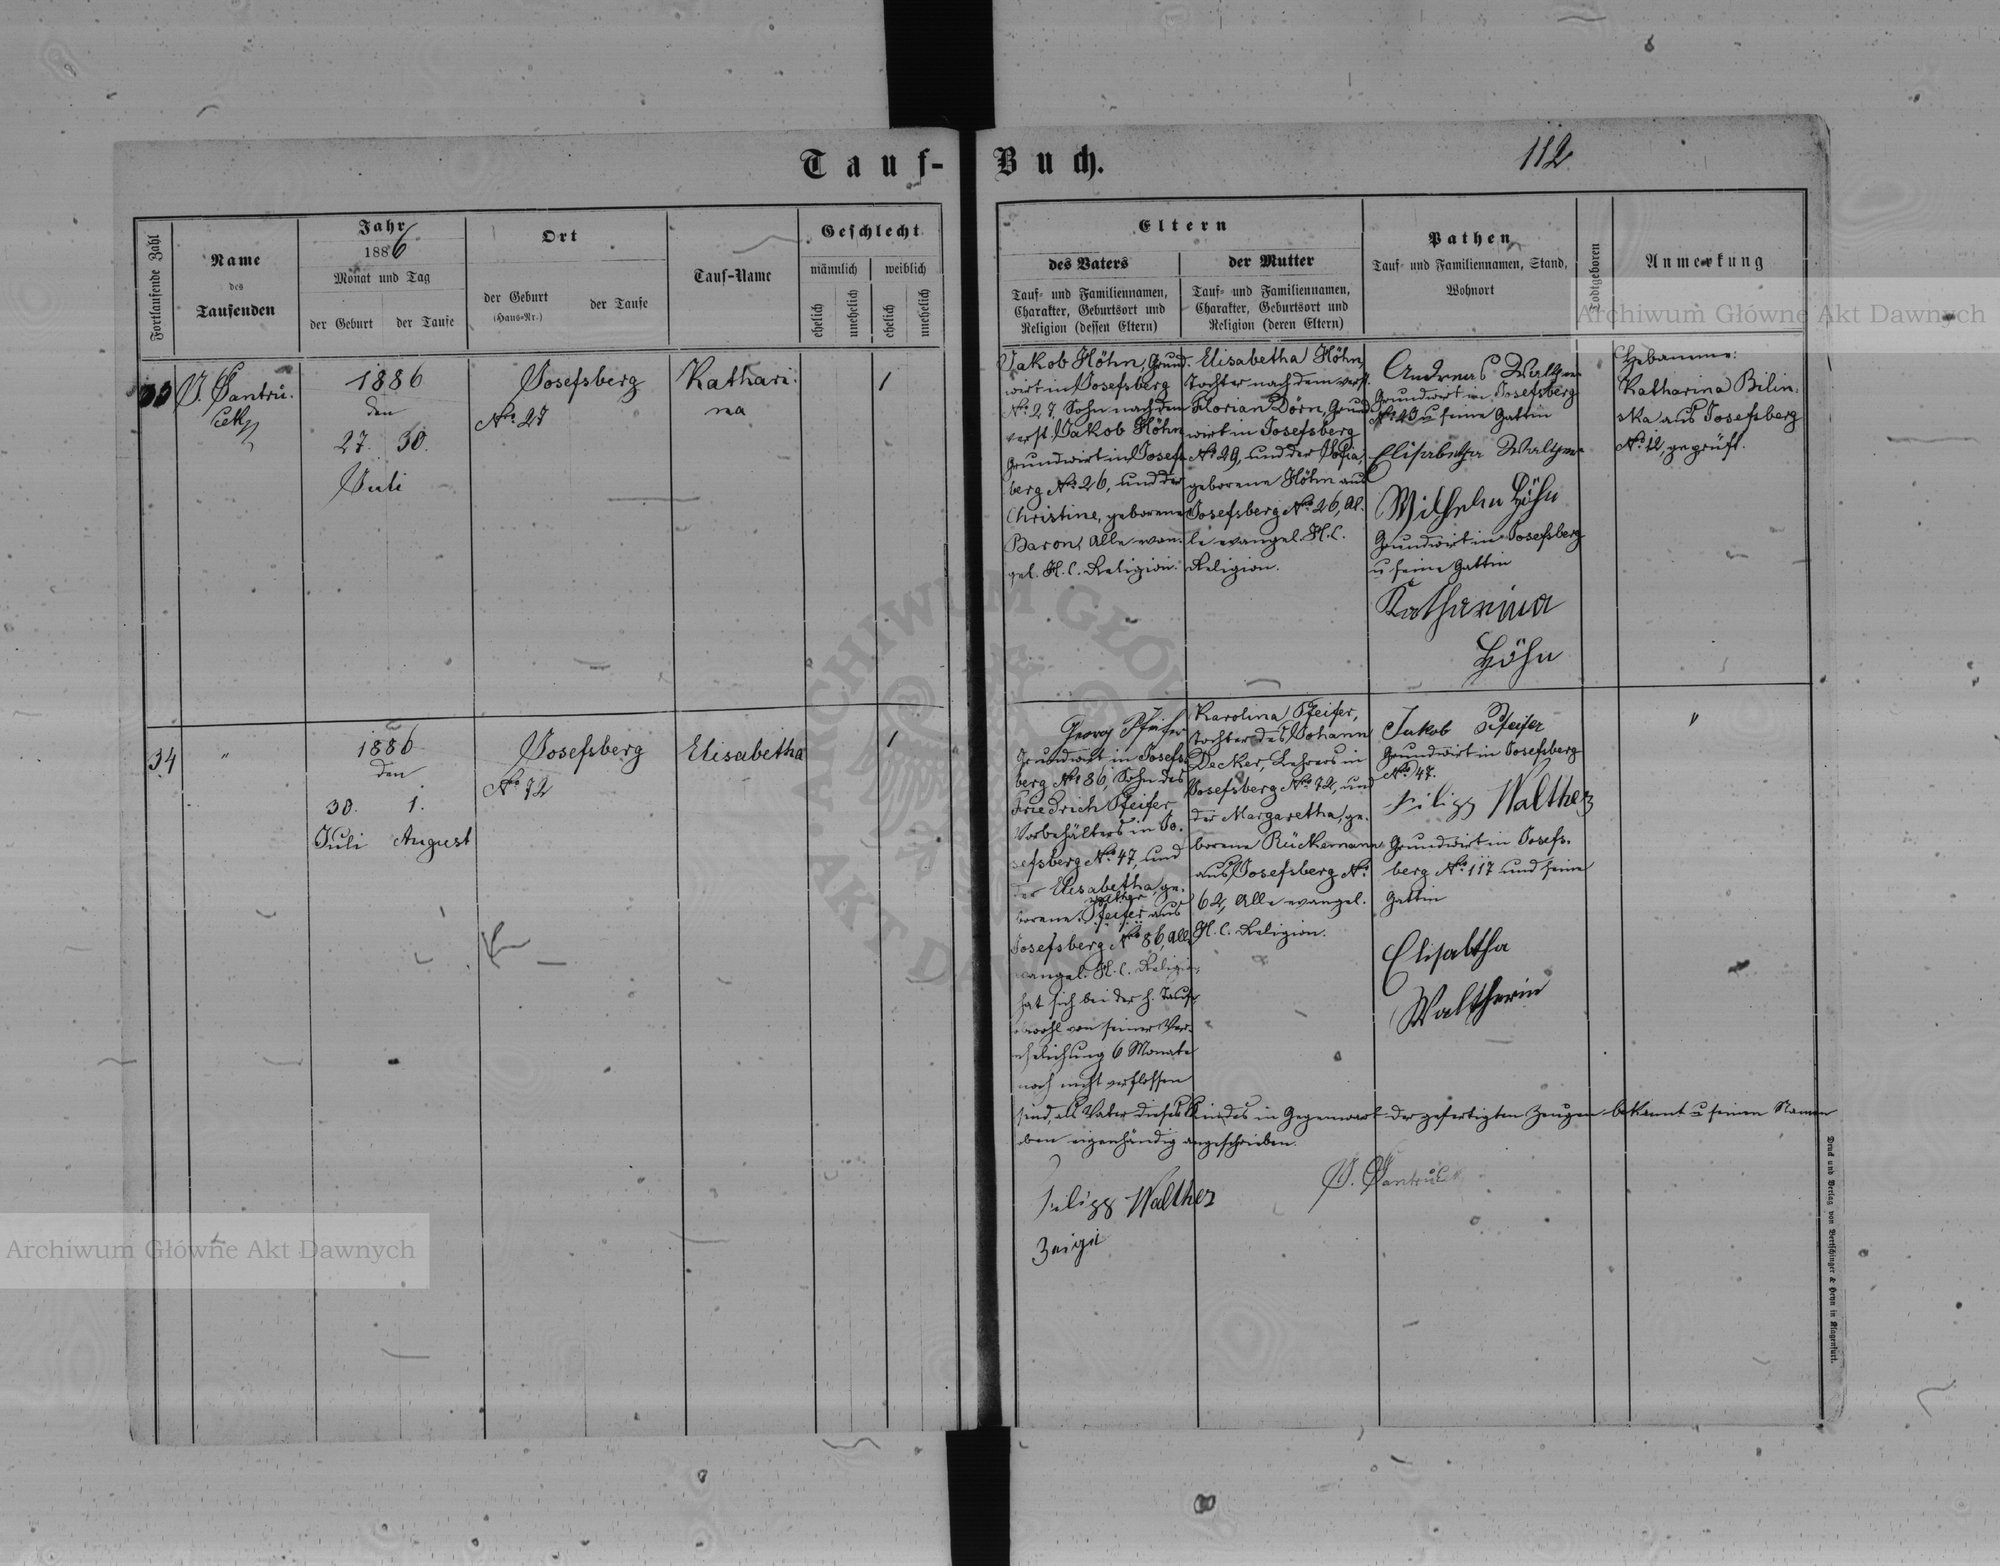 Tauf-Buch.
112
Fortlaufende Zahl
Name
des
Taufenden
Jahr
1886
Monat und Tag
der Geburt
der Taufe
Ort
der Geburt
(Haus-Nr.)
der Taufe
Tauf-Name
Geschlecht
männlich
weiblich
ehelich
unehelich
ehelich
unehelich
Eltern
des Vaters
Tauf- und Familiennamen,
Charakter, Geburtsort und
Religion (dessen Eltern)
der Mutter
Tauf- und Familiennamen,
Charakter, Geburtsort und
Religion (deren Eltern)
Pathen
Tauf- und Familiennamen, Stand,
Wohnort
Todtgeboren
Anmerkung
33
1886
den
27. 30.
Juli
Josefsberg
No. 27
Kathari-
na
1
Jakob Höhn, Grund-
wirt in Josefsberg
No. 27, Sohn nach dem
verst. Jakob Höhn
Grundwirt in Josefs-
berg No. 26, und der
Christine, geborene
Baron, Alle evan-
gel. H. C. Religion.
Elisabetha Höhn,
Tochter nach dem verst.
Florian Dörn, Grund-
wirt in Josefsberg
No. 29, und der Sofia,
geborene Höhn aus
Josefsberg No. 26, Al-
le evangel. H. C.
Religion.
Andreas
Grundwirt in Josefsberg
u seine Gattin
Elisabetha
Wilhelm Höhn
Grundwirt in Josefsberg
u seine Gattin
Katharina
Höhn
Hebamme:
Katharina Bilin-
ska aus Josefsberg
No. 12, geprüft.
34
"
1886
den
30. 1.
Juli August
Josefsberg
No. 72
Elisabetha
1
Georg Pfeifer
Grundwirt in Josefs-
berg No. 86, Sohn des
Friedrich Pfeifer
Vorbehälters in Jo-
sefsberg No. 47, und
der Elisabetha, ge-
borene Pfeifer aus
Josefsberg No. 86, Alle
evangel. H. C. Religion,
hat sich bei der h. Taufe
obwohl von seiner Ver-
ehelichung 6 Monate
noch nicht verflossen
sind, als Vater dieses Kindes in Gegenwart der gefertigten Zeugen bekannt u seinen Namen
oben eigenhändig angeschrieben.
Karolina Pfeifer,
Tochter des Johann
Decker, Lehrers in
Josefsberg No. 72, und
der Margaretha, ge-
borene Rückemann
aus Josefsberg No.
62, Alle evangel.
H. C. Religion.
Jakob Pfeifer
Grundwirt in Josefsberg
No. 47.
Filipp Walther
Grundwirt in Josefs-
berg No. 117 und seine
Gattin
Elisabtha
Waltherin
"
Filipp Walther
Zeige
Druck und Verlag von Bertschinger & Heyn in Klagenfurt.
Archiwum Główne Akt Dawnych
Archiwum Główne Akt Dawnych
ARCHIWUM GŁÓWNE AKT DAWNYCH